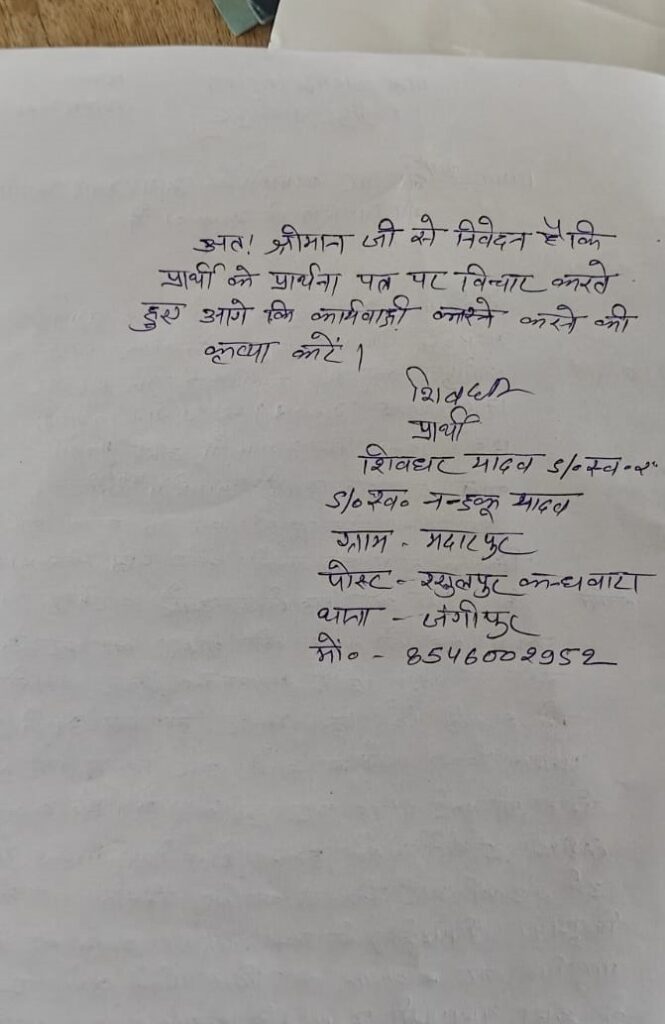 अत! श्रीमान जी से निवेदन है कि
प्रार्थी के प्रार्थना पत्र पर विचार करते
हुए आगे कि कार्यवाही करने की
कृप्या करें।
शिवधर
प्रार्थी
शिवधर यादव S/०स्व०
S/०स्व० नन्हकू यादव
ग्राम - मदारपुर
पोस्ट - रसुलपुर कन्धवारा
थाना - जंगीपुर
मों० - 8546002952